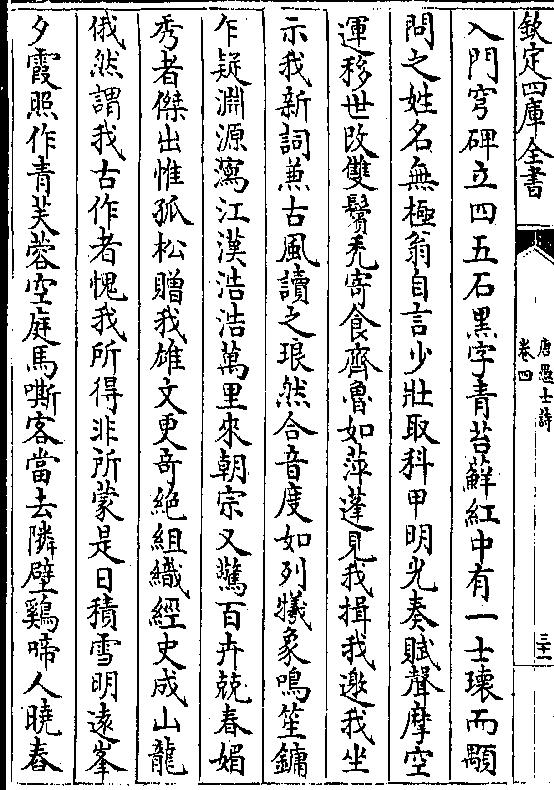 欽定四庫全書
唐愚士詩
卷四
三十一
入門穹碑立四五石黑字青苔蘚紅中有一士瓌而顒
問之姓名無極翁自言少壯取科甲明光奏賦聲摩空
運移世改雙鬢禿寄食齊魯如萍蓬見我揖我邀我坐
示我新詞兼古風讀之琅然合音度如列犧象鳴笙鏞
乍疑淵源瀉江漢浩浩萬里來朝宗又驚百卉兢春媚
秀者傑出惟孤松贈我雄文更奇絶組織經史成山龍
俄然謂我古作者愧我所得非所蒙是日積雪明遠峯
夕霞照作青芙蓉空庭馬嘶客當去隣壁鷄啼人曉舂